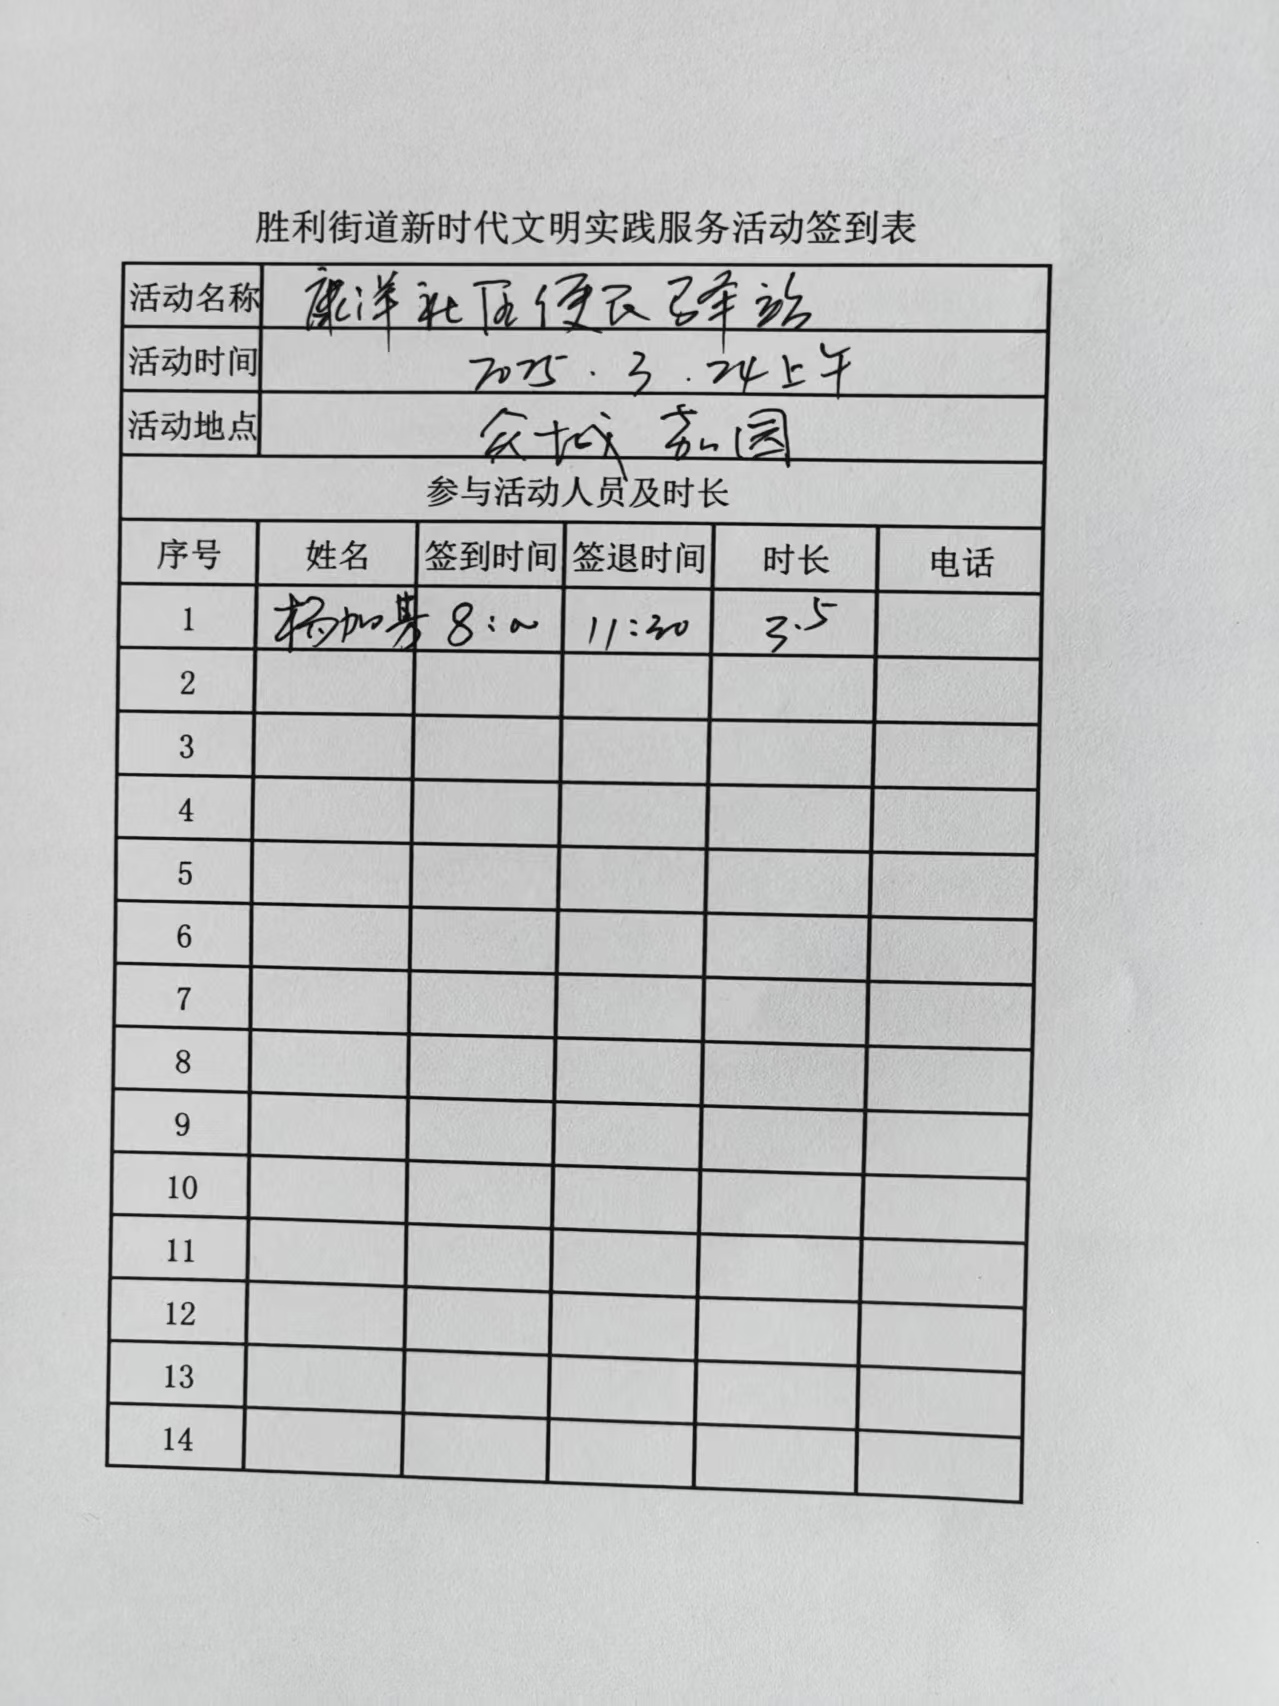 胜利街道新时代文明实践服务活动签到表
活动名称 康洋社区便民驿站
活动时间 2025.3.24上午
活动地点 众城嘉园
参与活动人员及时长
序号 姓名 签到时间 签退时间 时长 电话
1 杨加 8:00 11:30 3.5
2
3
4
5
6
7
8
9
10
11
12
13
14